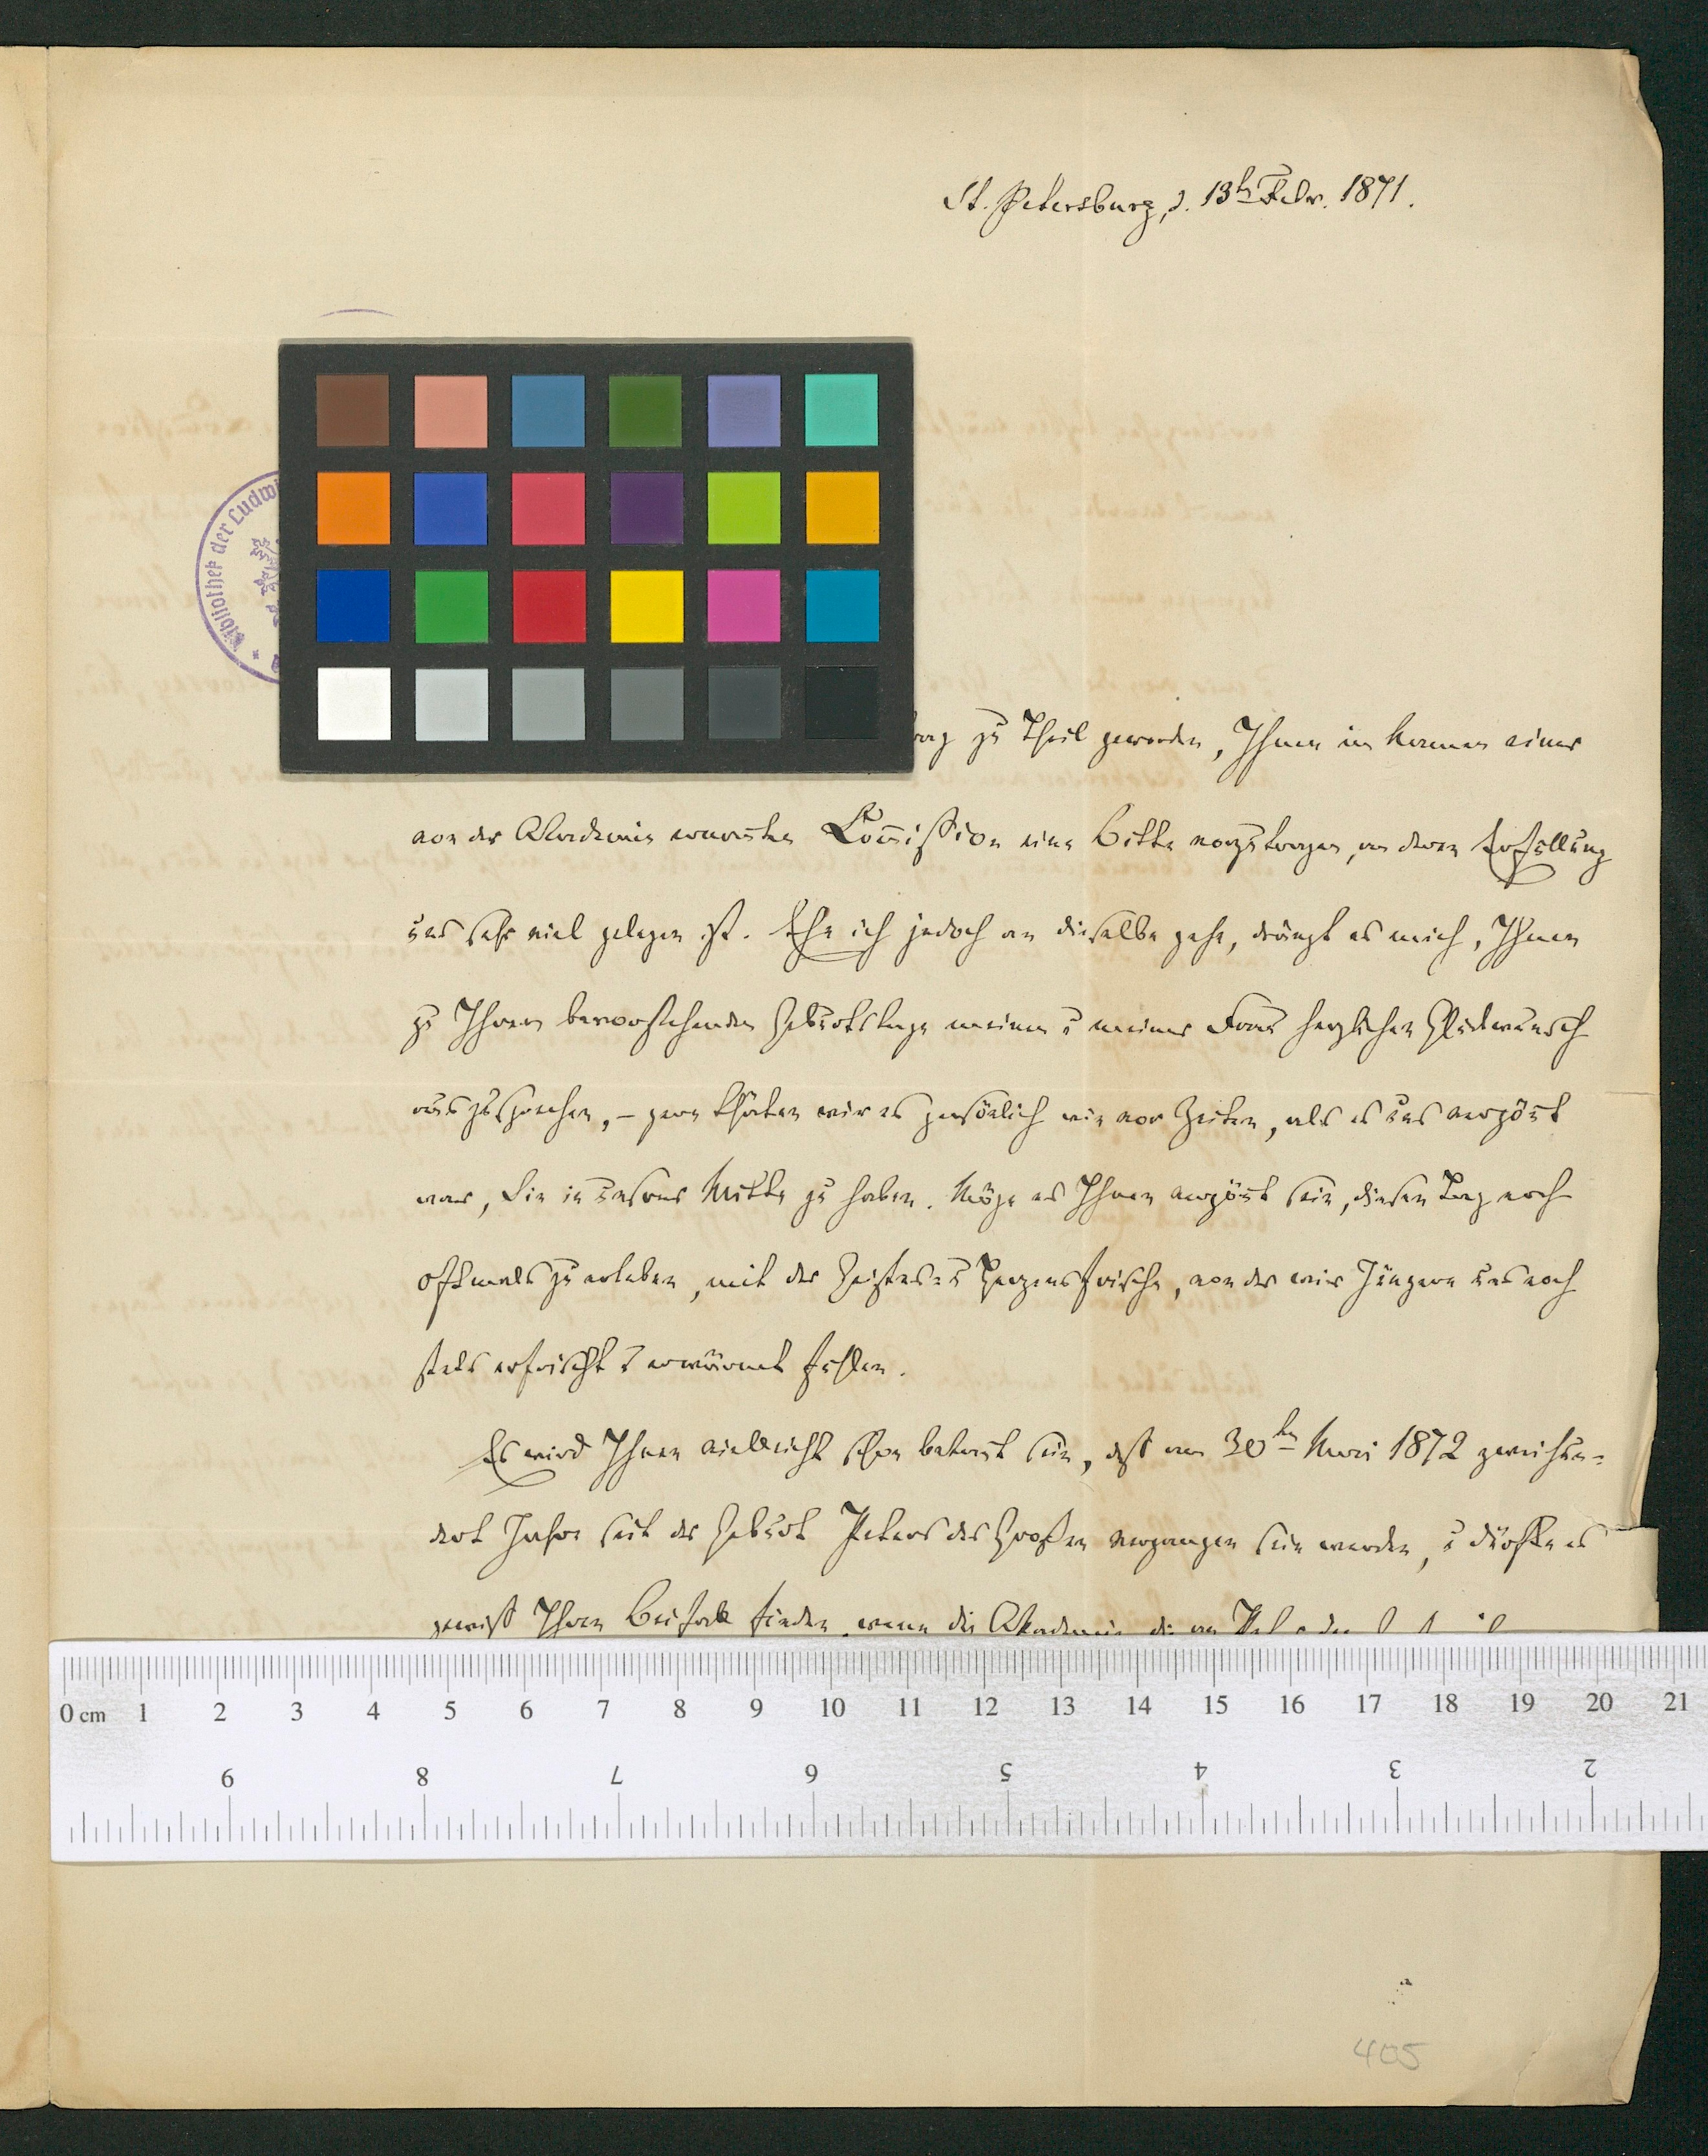 St. Petersburg, d. 13ten Febr. 1871.
Bibliothek der Ludwi
zu Theil geworden, Ihnen im Namen einer
von der Akademie ernannten Commission eine Bitte vorzutragen, an deren Erfüllung
uns sehr viel gelegen ist. Ehe ich jedoch an dieselbe gehe, drängt es mich, Ihnen
zu Ihrem bevorstehenden Geburtstage meinen u meiner Frau herzlichen Glückwunsch
auszusprechen, – gern thäten wir es persönlich wie vor Zeiten, als es uns vergönnt
war, Sie in unserer Mitte zu haben. Möge es Ihnen vergönnt sein, diesen Tag noch
oftmals zu erleben, mit der Geistes- u Herzensfrische, von der wir Jüngern uns noch
stets erfrischt u erwärmt fühlen.
Es wird Ihnen vielleicht schon bekannt sein, daß am 30ten Mai 1872 zweihun-
dert Jahre seit der Geburt Peters des Großen vergangen sein werden, u dürfte es
gewiß Ihren Beifall finden, wenn die Akademie die von
0 cm 1 2 3 4 5 6 7 8 9 10 11 12 13 14 15 16 17 18 19 20 21
9 8 7 6 5 4 3 2
405